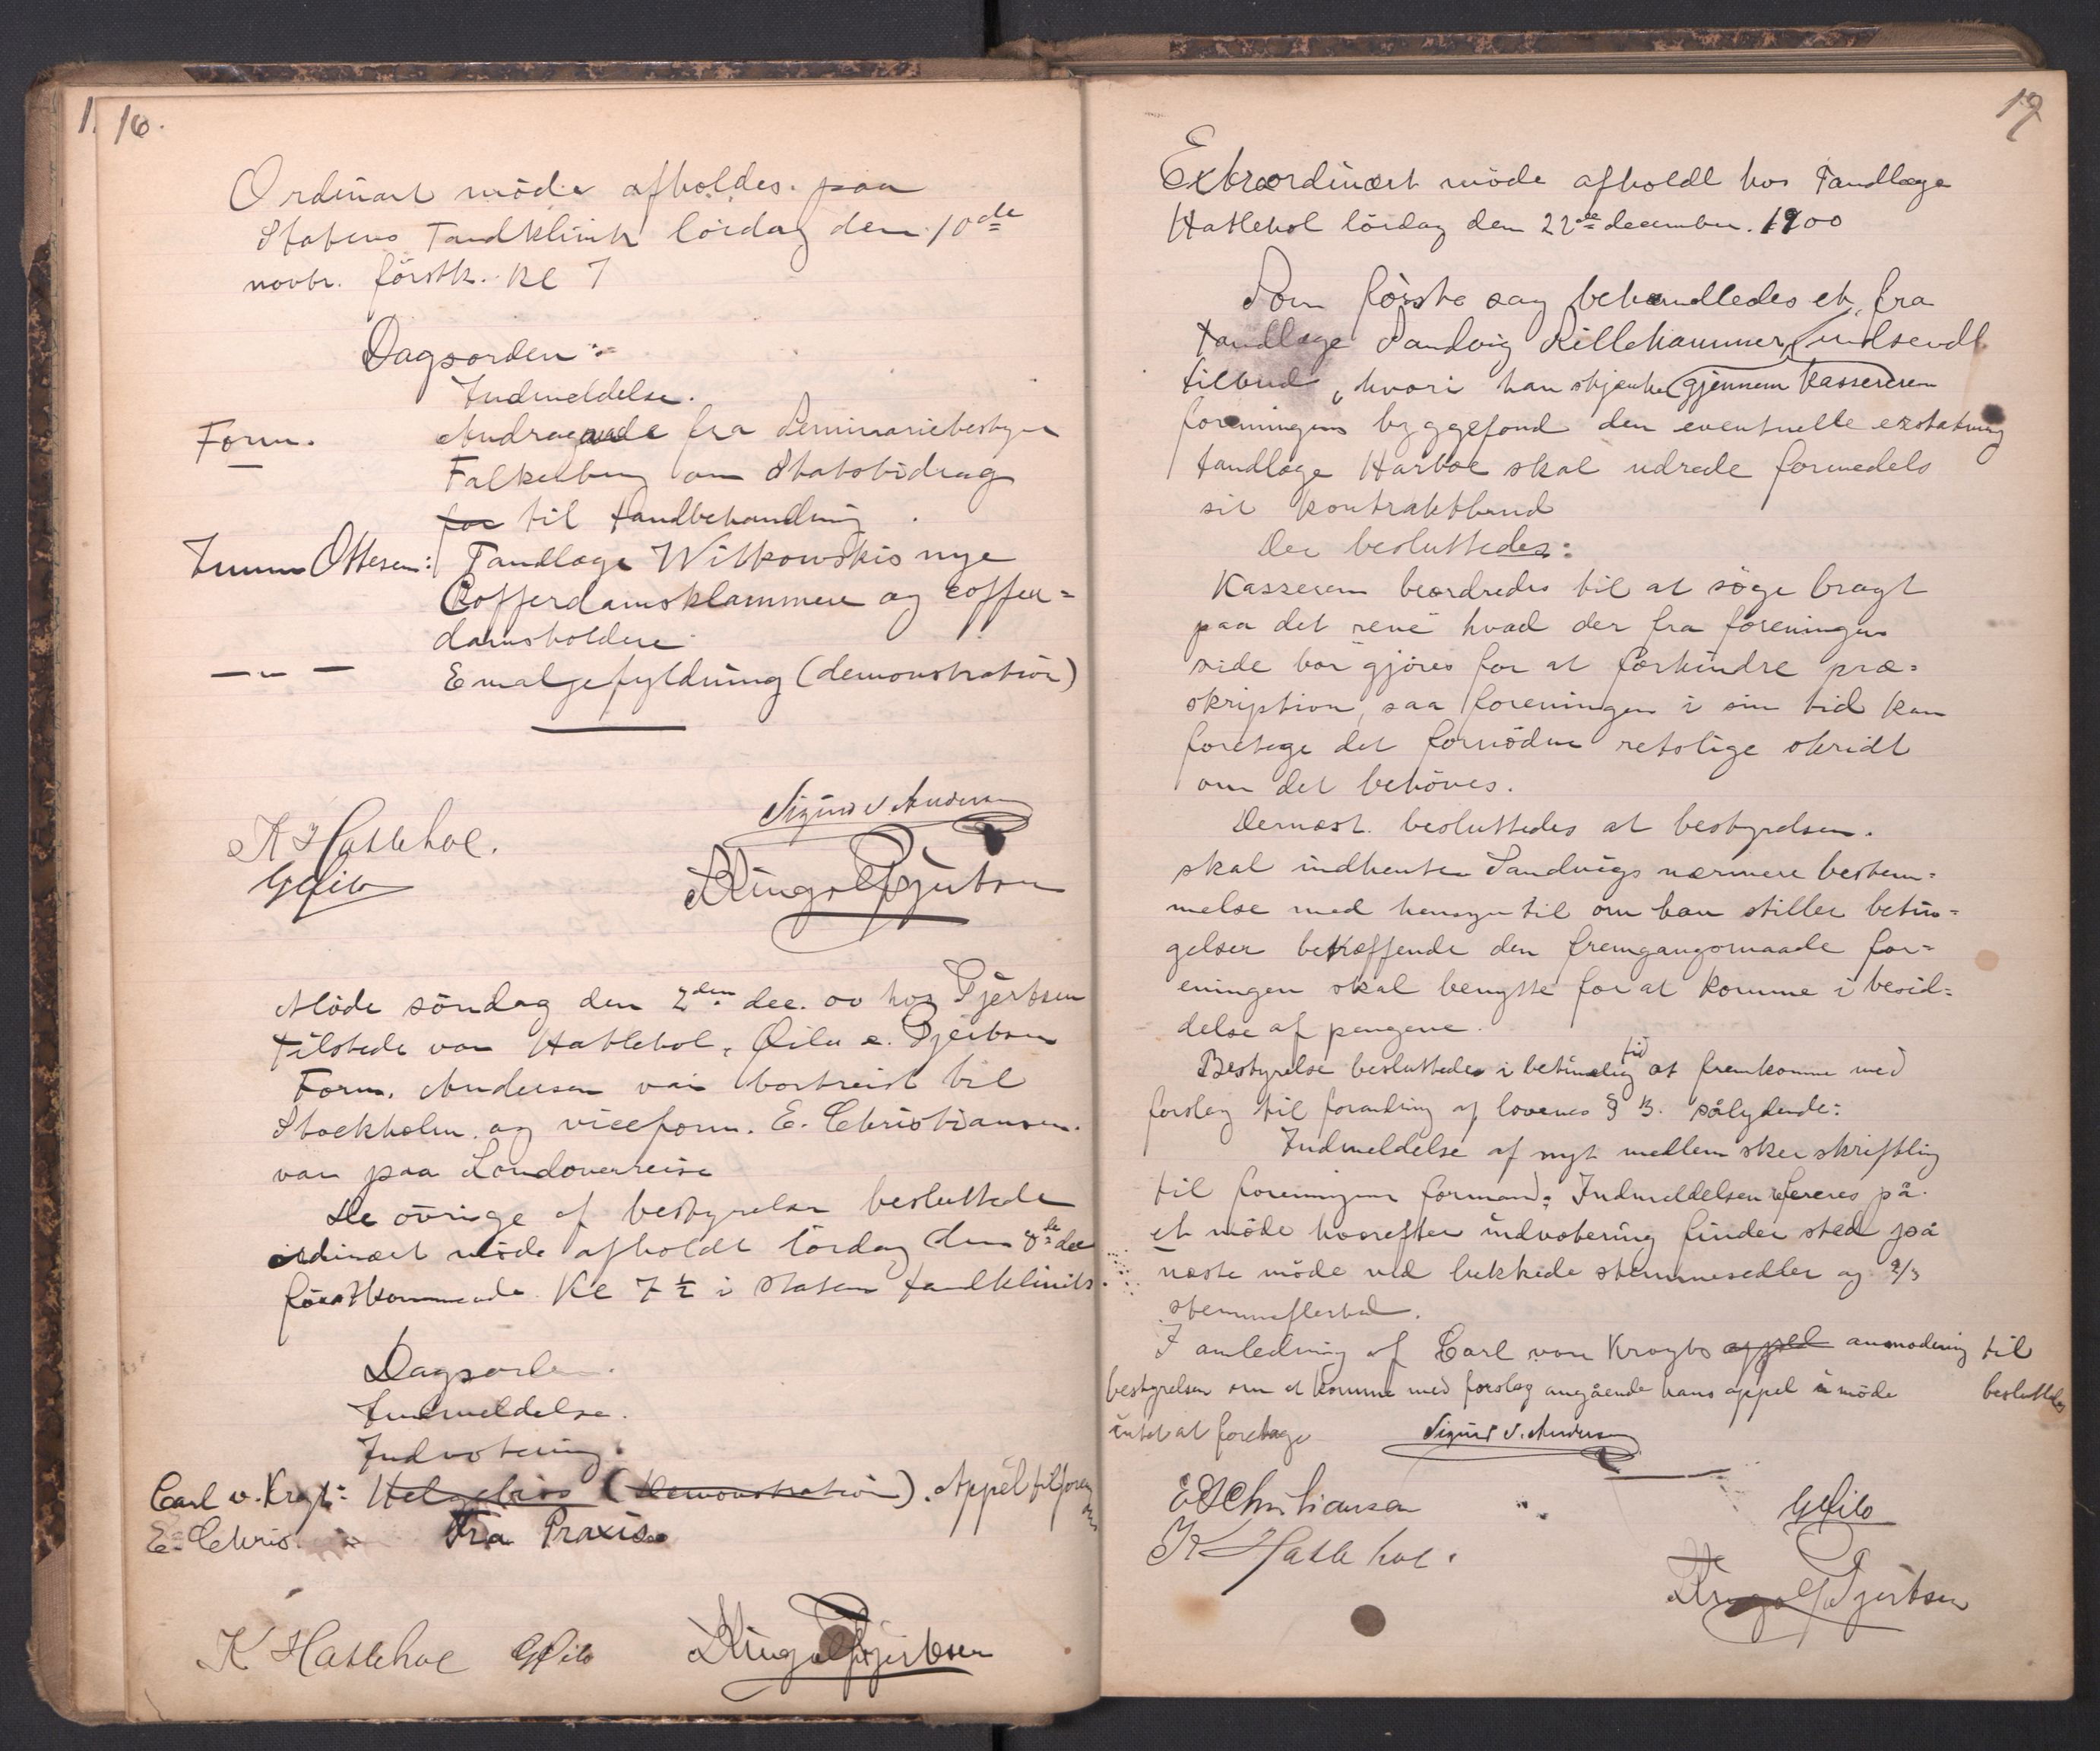 16.
Ordinært møde afholdes paa
Statens Tandklinik lördag den 10de
novbr. förstk. Kl 7
Dagsorden:
Indmeldelse.
Form. Andragende fra Seminariebestyrer
Falkelberg om Statsbidrag
for til tandbehandling.
Ottesen: Tandlæge Witkowskis nye
Cofferdamsklammere og coffer=
damsholdere
— " — Emaljefyldning (demonstration)
Sigurd S. Andersen
K Hatlehol.
GMilo
Ringolf Gjertsen
Möde söndag den 2den dec. 00 hos Gjertsen
tilstede var Hatlehol, Milo & Gjertsen
Form. Andersen var bortreist til
Stockholm og viceform. E. Christiansen
var paa Landoverreise
De övrige af bestyrelsen besluttede
ordinært möde afholdt lördag den 8de dec
förstkommende Kl 7 ½ i statens tandklinik.
Dagsorden.
Indmeldelse.
Indvotering.
Carl v. Krogh: (Demonstration). Appel til foren
E. Chris. Fra Praxis.
K Hatlehol GMilo Ringolf Gjertsen
17
Extraordinært möde afholdt hos Tandlæge
Hatlehol lördag den 22de december. 1900
Som förste sag behandledes et fra
tandlæge Sandvig Lillehammer, indsendt
tilbud, hvori han skjenker gjennem kassereren
foreningens byggefond den eventuelle erstatning
tandlæge Harboe skal udrede formedels
sit kontraktbrud
Der besluttedes:
Kasseren beordredes til at söge bragt
paa det rene hvad der fra foreningens
side bör gjöres for at forhindre præ=
skription, saa foreningen i sin tid kan
foretage det fornödne retslige skridt
om det behöves.
Dernæst besluttedes at bestyrelsen
skal indhente Sandvigs nærmere bestem=
melse med hensyn til om han stiller betin=
gelser betræffende den fremgangsmaade for=
eningen skal benytte for at komme i besid=
delse af pengene.
Bestyrelse besluttedes i betimelig tid at fremkomme med
forslag til forandring af lovenes § 3. sålydende:
Indmeldelse af nyt medlem sker skriftlig
til foreningens formand. Indmeldelsen refereres på
et möde hvorefter indvotering finder sted på
næste möde ved lukkede stemmesedler og 2/3
stemmeflertal.
I anledning af Carl von Kroghs appel anmodning til
bestyrelsen om at komme med forslag angående hans appel i möde besluttedes
intet at foretage
Sigurd S. Andersen
E Christiansen
GMilo
K Hatlehol.
Ringolf Gjertsen